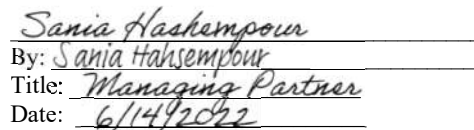 Sania Hashempour
By: Sania Hahsempour
Title: Managing Partner
Date: 6/14/2022